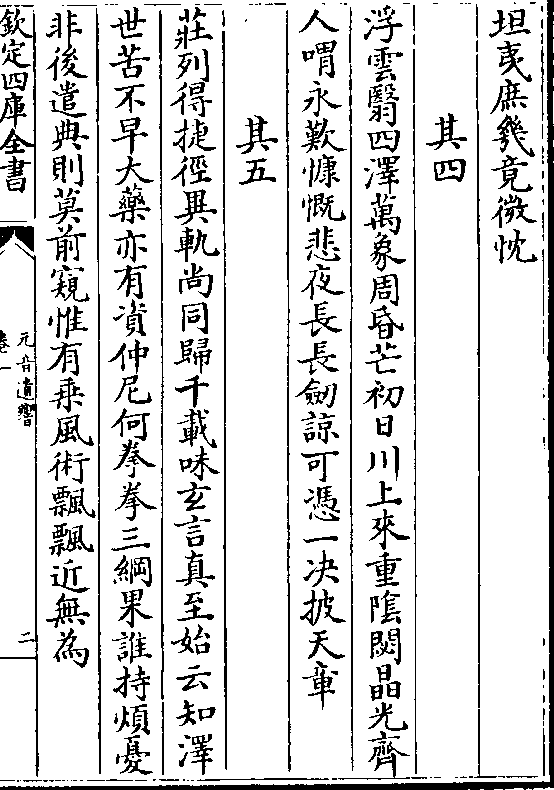 坦夷庶幾竟微忱
其四
浮雲翳四澤萬象周昏芒初日川上來重陰閟晶光齊
人喟永歎慷慨悲夜長長劍諒可憑一决披天章
其五
莊列得捷徑異軌尚同歸千載味玄言真至始云知澤
世苦不早大藥亦有資仲尼何拳拳三綱果誰持煩憂
非後遣典則莫前窺惟有乗風術飄飄近無為
欽定四庫全書
元音遺響
卷一
二